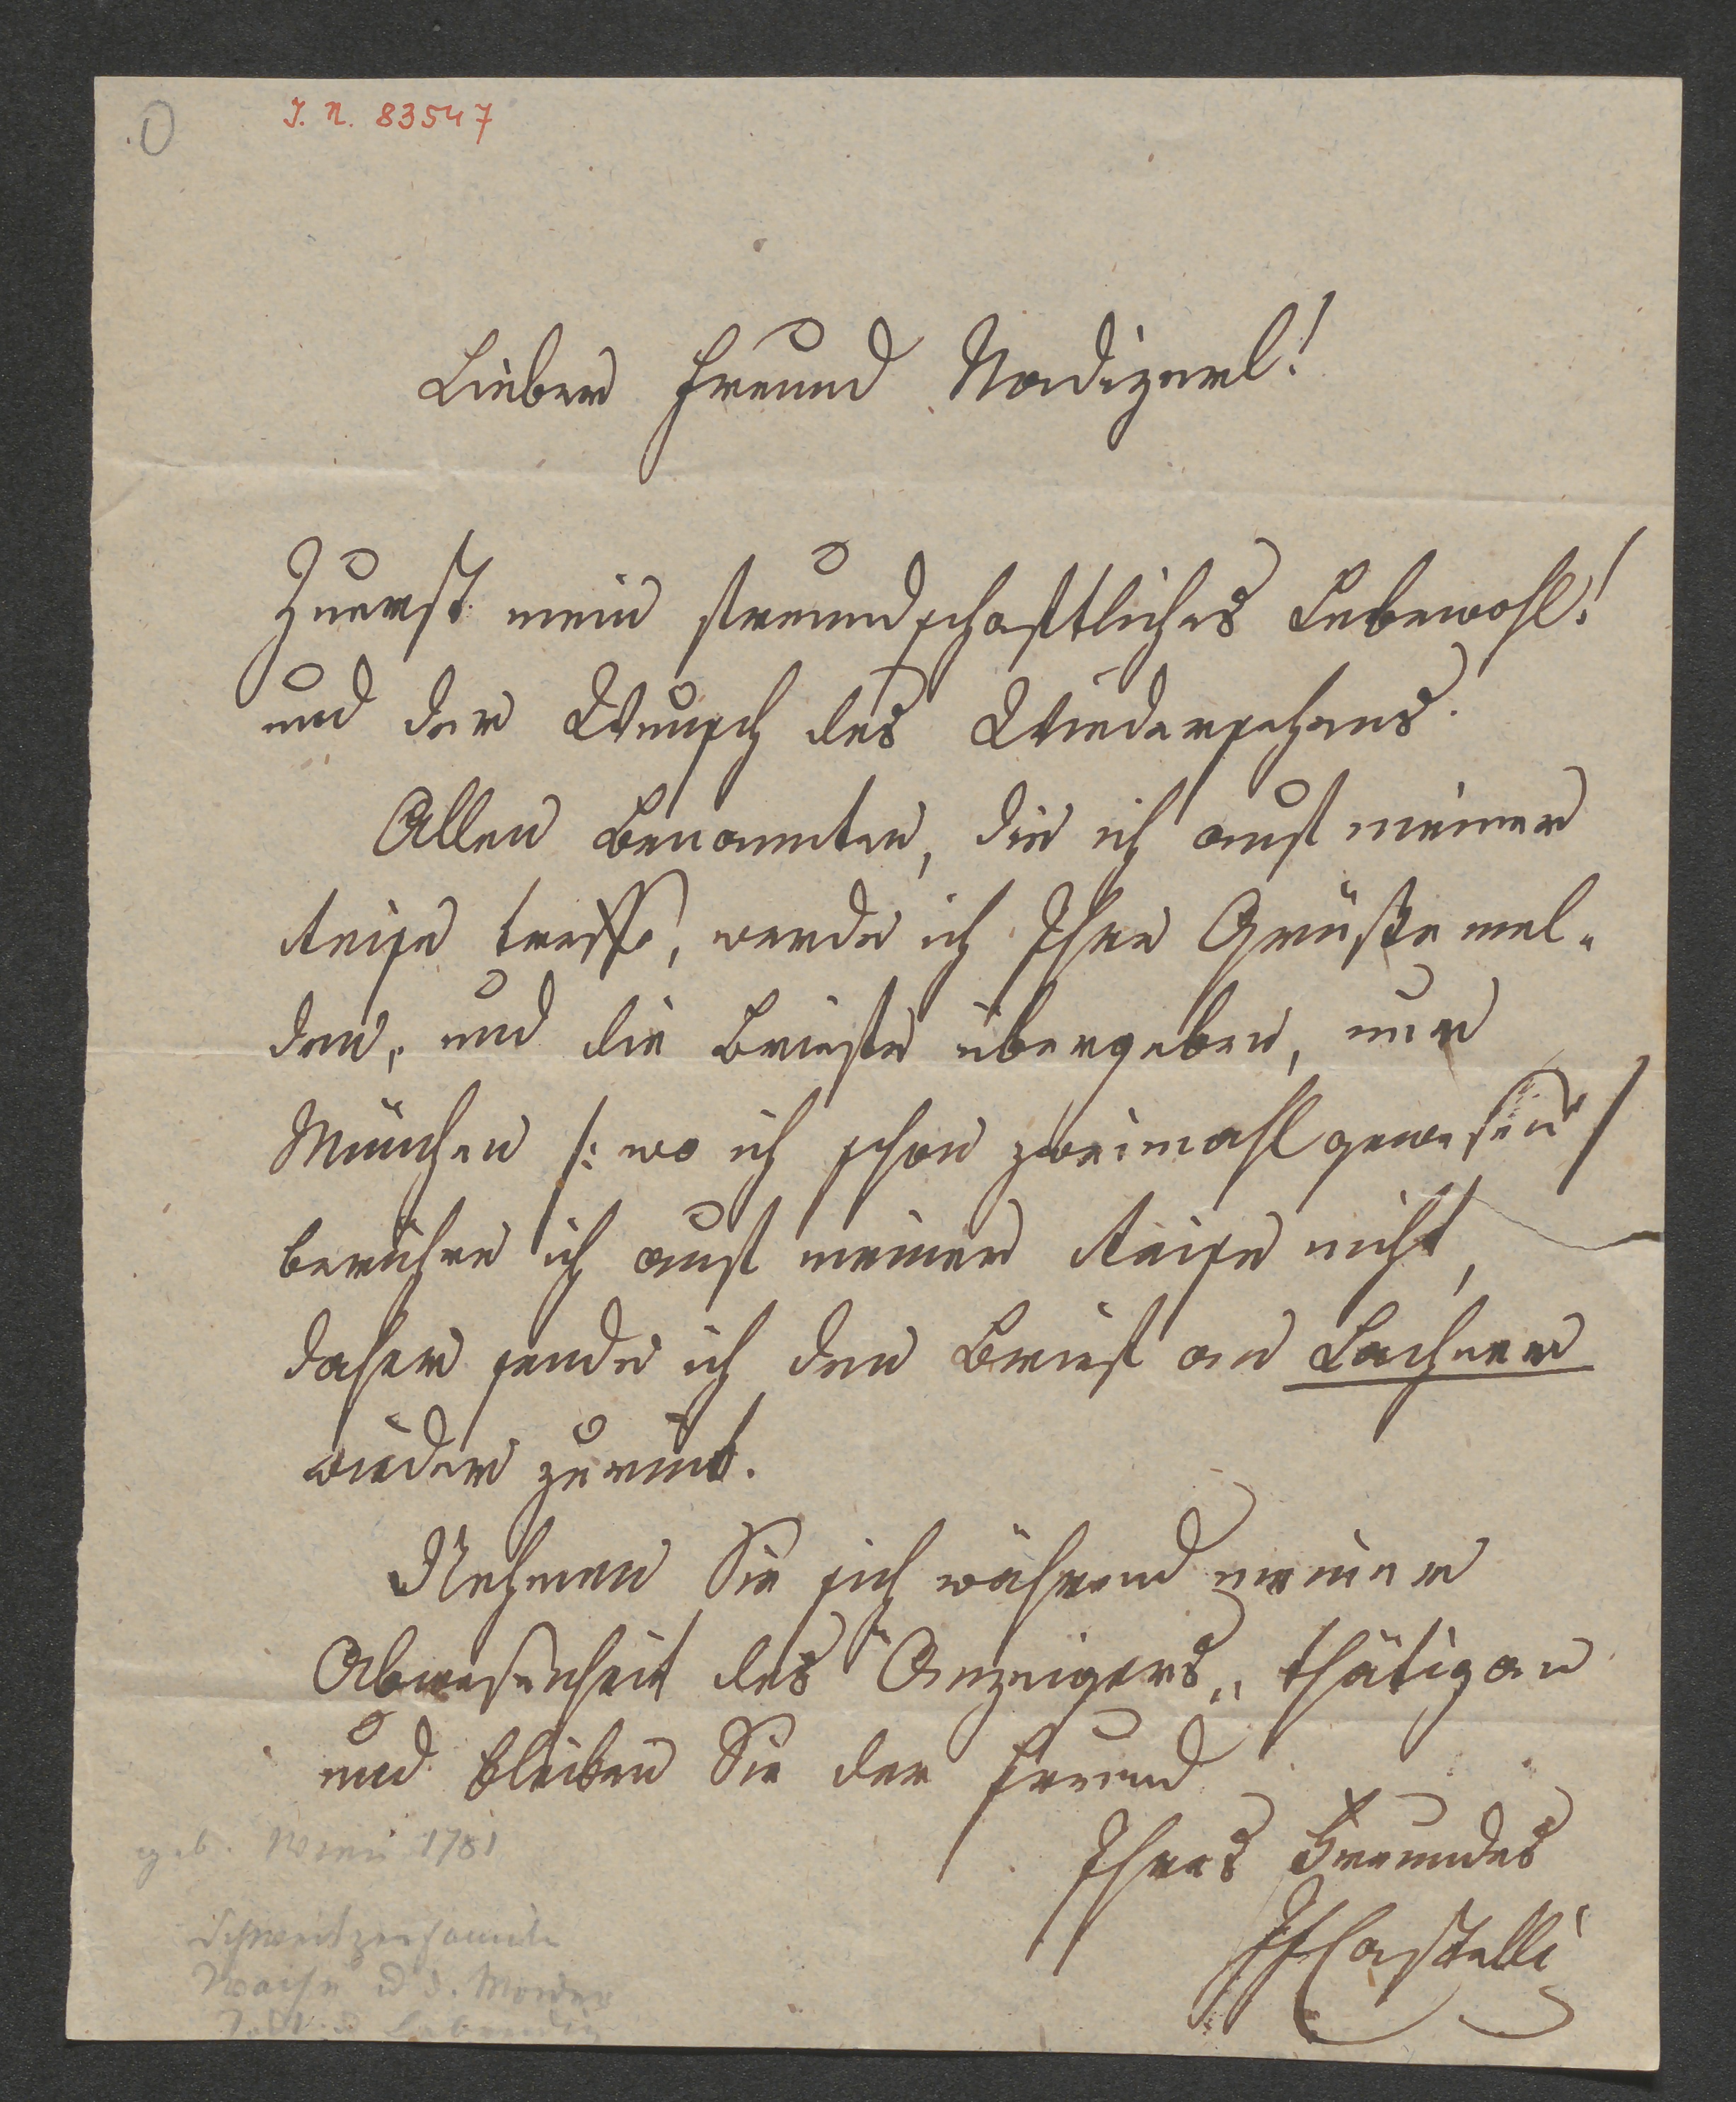 O
I. N. 83547
Lieber Freund Nadizerl!
Zuerst mein freundschaftliches Lebewohl!
und der Wunsch des Wiedersehens.
Allen Benannten, die ich auf meiner
Reise treffe, werde ich Ihre Grüße mel-
den, und die Briefe übergeben, nur
München /: wo ich schon zweimahl gewesen /
berühre ich auf meiner Reise nicht,
daher sende ich den Brief an Lachner
wieder zurück.
Nehmen Sie sich während meiner
Abwesenheit des "Anzeigers„ thätig an
und bleiben Sie der Freund
Ihres Freundes
IFCastelli
geb. Wien 1781
Schweitzerfamilie
Waise u d. Mörder